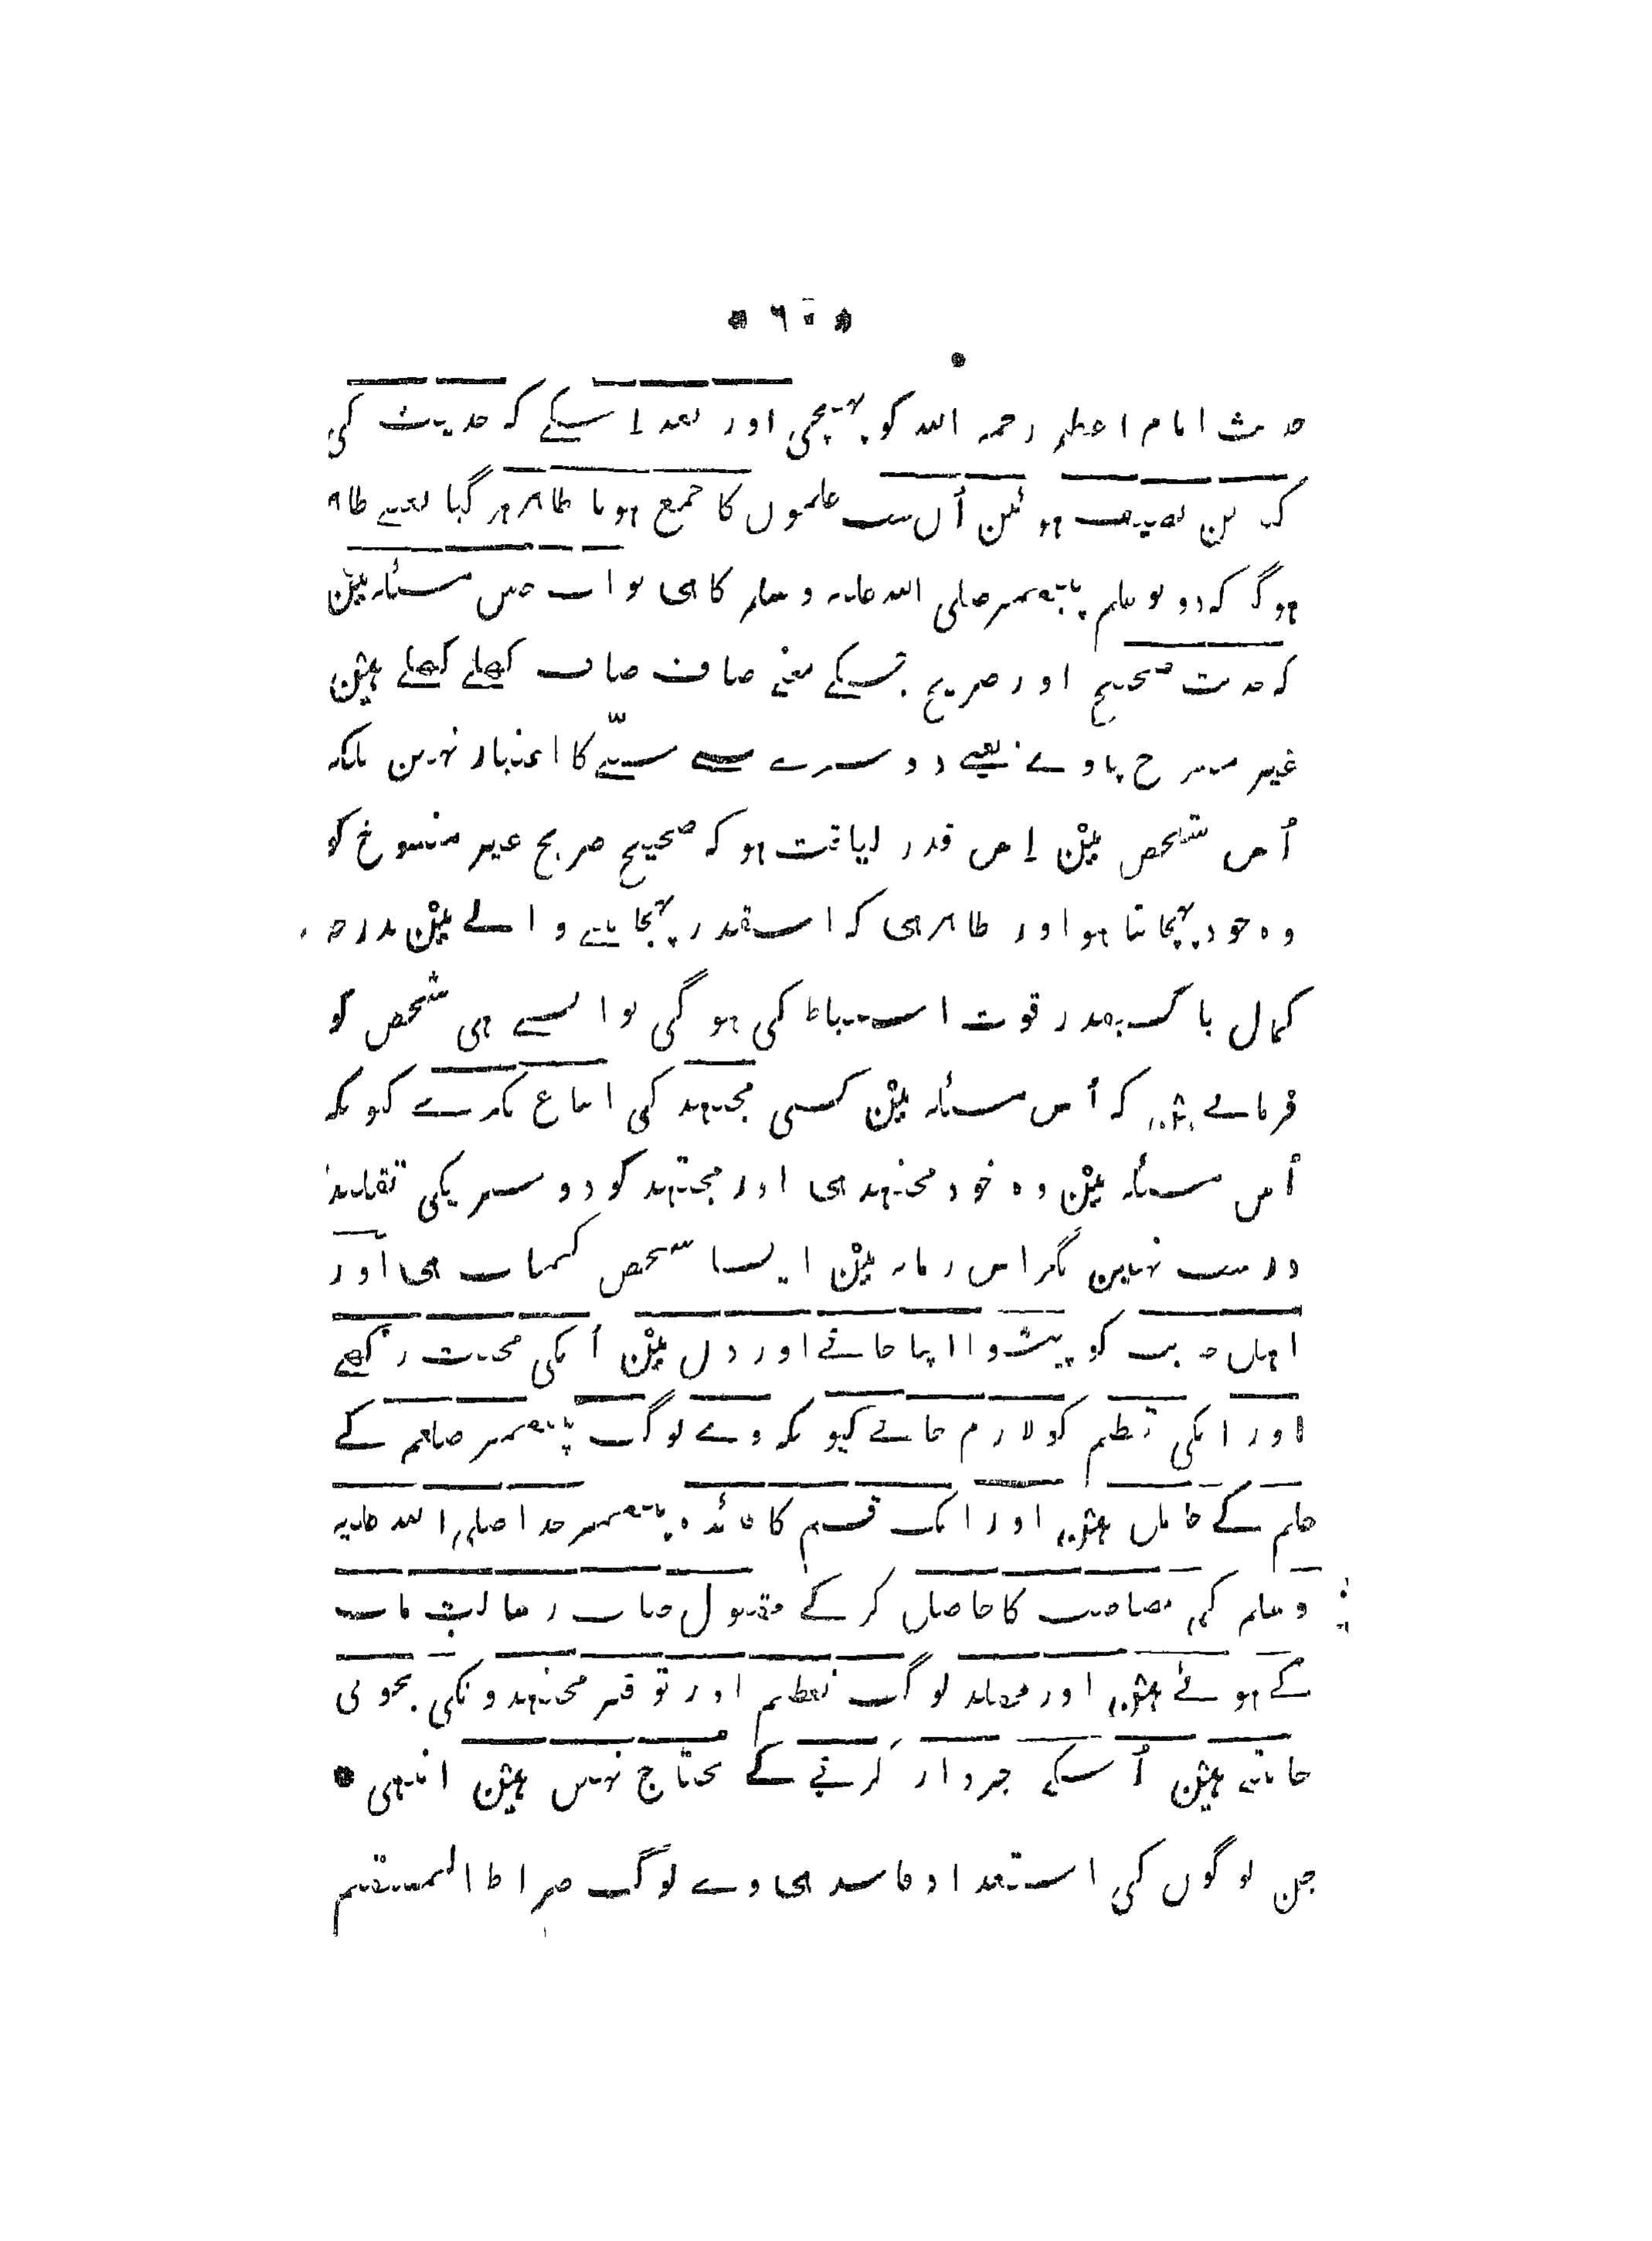 * ٦٠ *
حدیث امام اعظم رحمہ اللہ کو پہنچی اور بعد اسکے کہ حدیث کی
کتابین تصنیف ہوئین اُن سب علموں کا جمع ہونا ظاہر ہو گیا یعنے ظاہر
ہوگیا کہ دونو علم پیغمبر صلی اللہ علیہ وسلم کا ہی تو اب جس مسئلہ مین
کہ حدیث صحیح اور صریح جسکے معنے صاف صاف کھلے کھلے ہین
غیر منسوخ پاوے یعنے دوسرے سے سنے کا اعتبار نہین بلکہ
اُس شخص مین اس قدر لیاقت ہو کہ صحیح صریح غیر منسوخ کو
وہ خود پہچانتا ہو اور ظاہر ہی کہ اسقدر پہچاننے والے مین بدرجہ
کمال یا کسیقدر قوت استنباط کی ہوگی تو ایسے ہی شخص کو
فرماتے ہین کہ اُس مسئلہ مین کسی مجتہد کی اتباع نکرے کیونکہ
اُس مسئلہ مین وہ خود مجتہد ہی اور مجتہد کو دوسریکی تقلید
درست نہین مگر اس زمانہ مین ایسا شخص کمیاب ہی اور
اہل حدیث کو پیشوا اپنا جانے اور دل مین اُنکی محبت رکھے
اور انکی تعظیم کو لازم جانے کیونکہ وے لوگ پیغمبر صلعم کے
علم کے حامل ہین اور ایک قسم کا فائدہ پیغمبر خدا صلی اللہ علیہ
وسلم کی مصاحبت کا حاصل کر کے مقبول جناب رسالت مآب
کے ہوئے ہین اور مقلد لوگ تعظیم اور توقیر مجتہدونکی بخوبی
جانتے ہین اُسکے خبردار کرنے کے محتاج نہین ہین انتہی *
جن لوگوں کی استعداد فاسد ہی وے لوگ صراط المستقیم